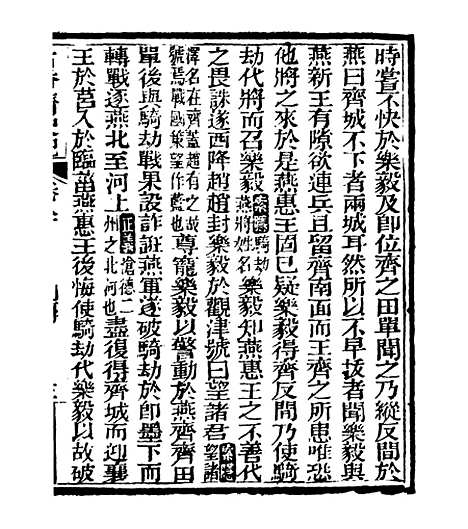 時嘗不快於樂毅及即位齊之田單聞之乃縱反間於
燕曰齊城不下者兩城耳然所以不早拔者聞樂毅與
燕新王有隙欲連兵且留齊南面而王齊齊之所患唯恐
他將之來於是燕惠王固已疑樂毅得齊反間乃使騎
劫代將而召樂毅索隱燕將姓名騎劫樂毅知燕惠王之不善代
之畏誅遂西降趙趙封樂毅於觀津號曰望諸君索隱望諸
澤名在齊蓋趙有之故號焉戰國策望作藍也尊寵樂毅以警動於燕齊齊田
單後與騎劫戰果設詐誑燕軍遂破騎劫於即墨下而
轉戰逐燕北至河上正義滄德二州之北河也盡復得齊城而迎襄
王於莒入於臨菑燕惠王後悔使騎劫代樂毅以故破